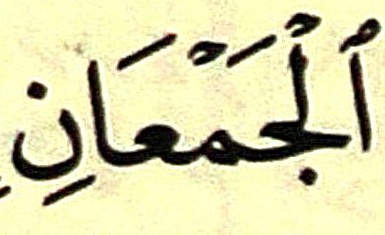 ٱلْجَمْعَانِ